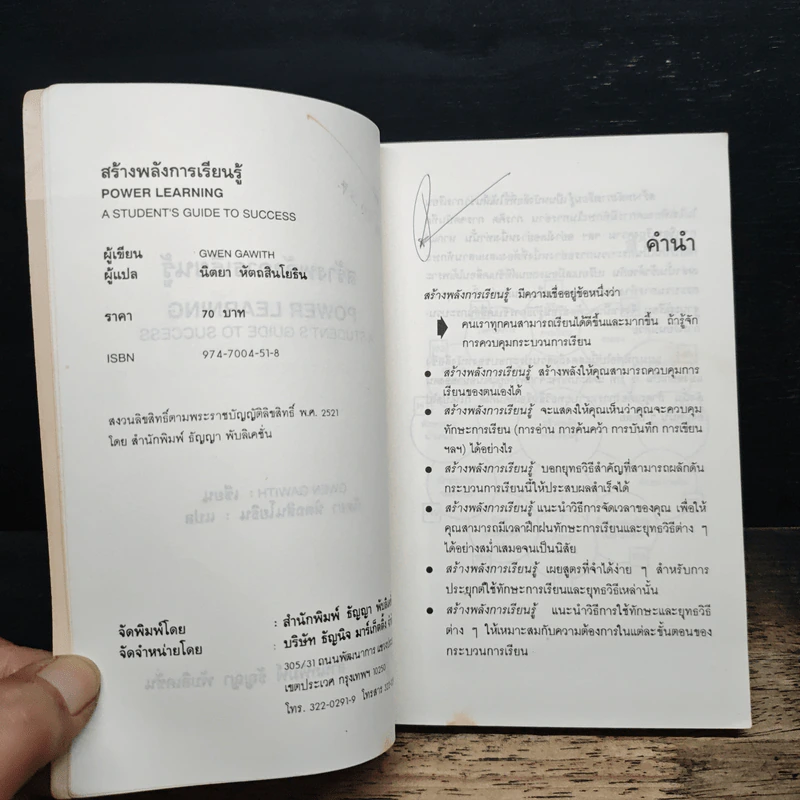 สร้างพลังการเรียนรู้
POWER LEARNING
A STUDENT'S GUIDE TO SUCCESS
ผู้เขียน GWEN GAWITH
ผู้แปล นิตยา หัตถสินโยธิน
ราคา 70 บาท
ISBN 974-7004-51-8
สงวนลิขสิทธิ์ตามพระราชบัญญัติลิขสิทธิ์ พ.ศ. 2521
โดย สำนักพิมพ์ ธัญญา พับลิเคชั่น
จัดพิมพ์โดย : สำนักพิมพ์ ธัญญา
จัดจำหน่ายโดย : บริษัท ธัญนิจ มาร์เก็ตติ้ง
305/31 ถนนพัฒนาการ
เขตประเวศ กรุงเทพฯ 10250
โทร. 322-0291-9 โทรสาร
คำนำ
สร้างพลังการเรียนรู้ มีความเชื่ออยู่ข้อหนึ่งว่า
คนเราทุกคนสามารถเรียนได้ดีขึ้นและมากขึ้น ถ้ารู้จัก
การควบคุมกระบวนการเรียน
● สร้างพลังการเรียนรู้ สร้างพลังให้คุณสามารถควบคุมการ
เรียนของตนเองได้
● สร้างพลังการเรียนรู้ จะแสดงให้คุณเห็นว่าคุณจะควบคุม
ทักษะการเรียน (การอ่าน การค้นคว้า การบันทึก การเขียน
ฯลฯ) ได้อย่างไร
● สร้างพลังการเรียนรู้ บอกยุทธวิธีสำคัญที่สามารถผลักดัน
กระบวนการเรียนนี้ให้ประสบผลสำเร็จได้
● สร้างพลังการเรียนรู้ แนะนำวิธีการจัดเวลาของคุณ เพื่อให้
คุณสามารถมีเวลาฝึกฝนทักษะการเรียนและยุทธวิธีต่าง ๆ
ได้อย่างสม่ำเสมอจนเป็นนิสัย
● สร้างพลังการเรียนรู้ เผยสูตรที่จำได้ง่าย ๆ สำหรับการ
ประยุกต์ใช้ทักษะการเรียนและยุทธวิธีเหล่านั้น
● สร้างพลังการเรียนรู้ แนะนำวิธีการใช้ทักษะและยุทธวิธี
ต่าง ๆ ให้เหมาะสมกับความต้องการในแต่ละขั้นตอนของ
กระบวนการเรียน